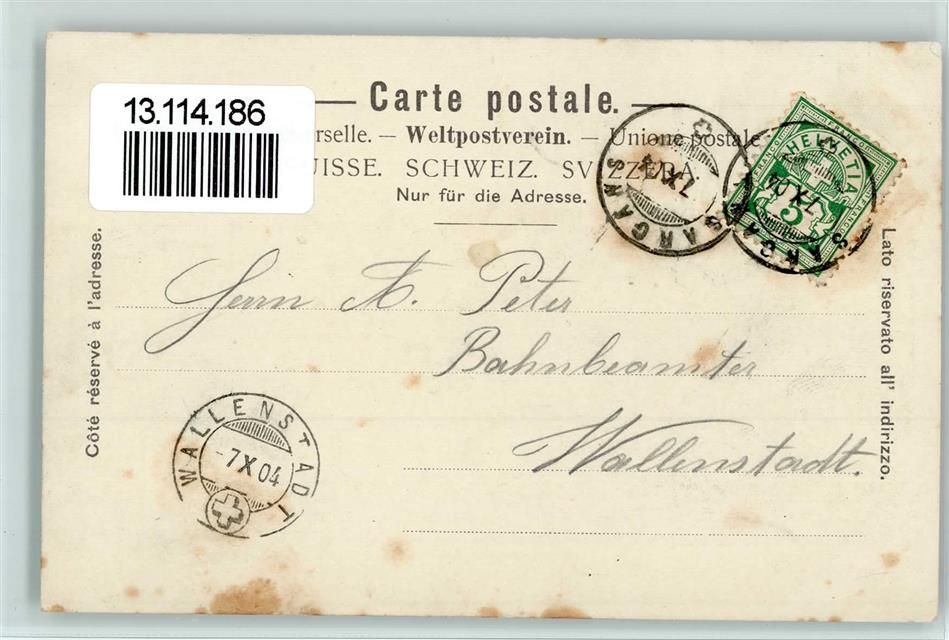 13.114.186
Carte postale.
erselle. — Weltpostverein. — Unione postale
UISSE. SCHWEIZ. SVIZZERA.
Nur für die Adresse.
Côté réservé à l'adresse.
Lato riservato all' indirizzo.
SARGANS
7.X.04
HELVETIA
FRANCO
5
SARGANS
7.X.04
Herrn A. Peter
Bahnbeamter
Wallenstadt.
WALLENSTADT
-7.X.04